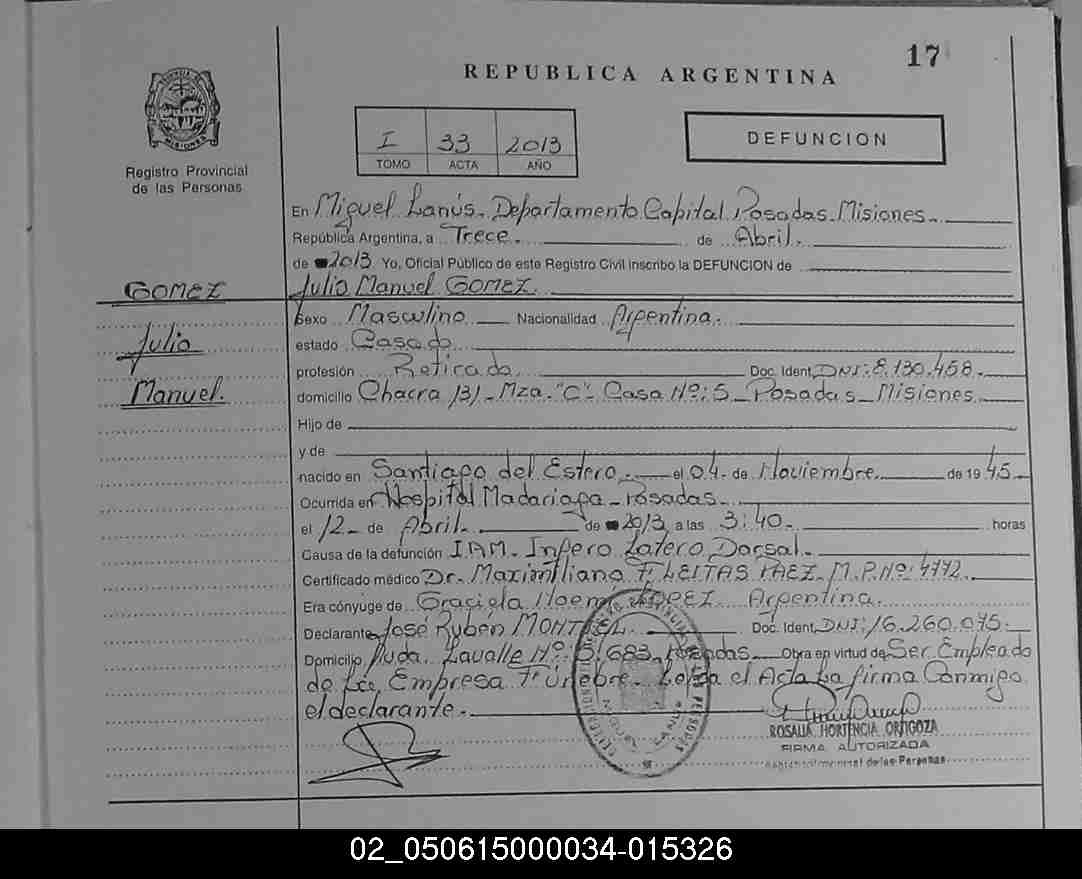 17
REPUBLICA ARGENTINA
I 33 2013
TOMO ACTA AÑO
DEFUNCION
Registro Provincial
de las Personas
En Miguel Lanús. Departamento Capital Posadas. Misiones.
República Argentina, a Trece. de Abril.
de 2013 Yo, Oficial Público de este Registro Civil inscribo la DEFUNCION de
GOMEZ Julio Manuel GOMEZ.
Sexo Masculino Nacionalidad Argentina.
Julio
estado Casado
profesión Retirado Doc. Ident. DNI: 8.130.458.
Manuel.
domicilio Chacra 131 Mza. "C" Casa Nº: 5 Posadas Misiones
Hijo de
y de
nacido en Santiago del Estero. el 04 de Noviembre. de 19 45.
Ocurrida en Hospital Madariaga - Posadas.
el 12 de Abril. de 2013 a las 3:40. horas
Causa de la defunción I.A.M. Infero Latero Dorsal.
Certificado médico Dr. Maximiliano F. LEITAS PAEZ. M.P.Nº: 4772.
Era cónyuge de Graciela Noemi LOPEZ Argentina.
Declarante José Ruben Doc. Ident. DNI: 16.260.075.
Domicilio Avda. Lavalle Nº: 5.683 Posadas. Obra en virtud de Ser Empleado
de Empresa Fúnebre. Leída el Acta La firma Conmigo
el declarante.
ROSALIA HORTENCIA ORTIGOZA
FIRMA AUTORIZADA
de las Personas
02_050615000034-015326